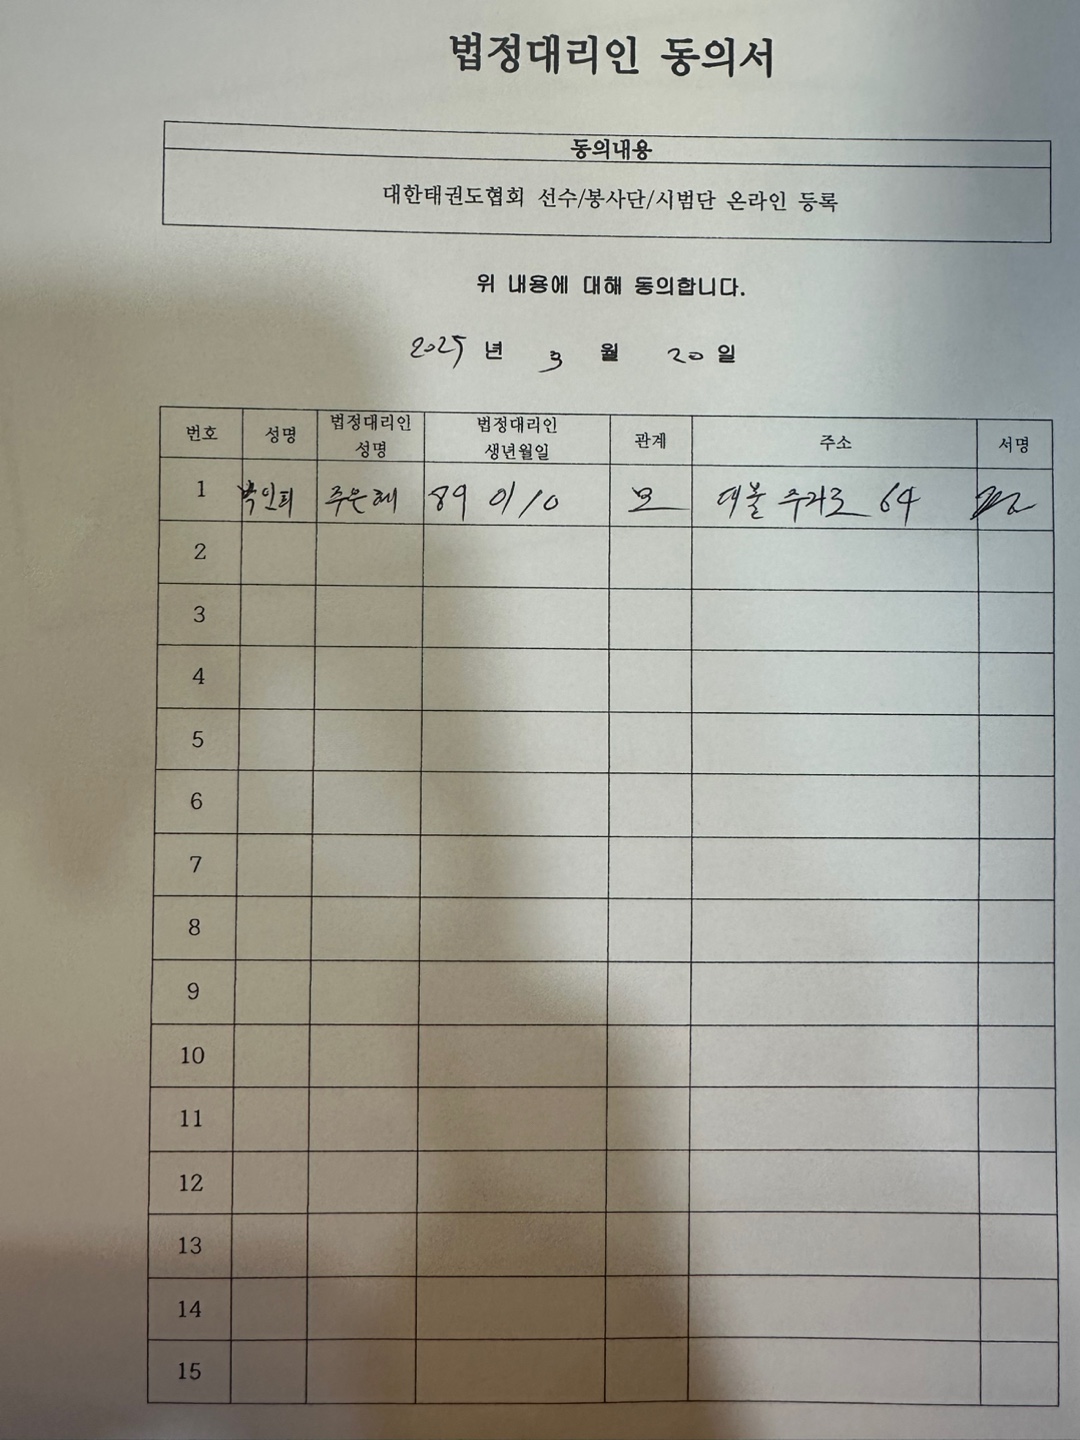 법정대리인 동의서
동의내용
대한태권도협회 선수/봉사단/시범단 온라인 등록
위 내용에 대해 동의합니다.
2025 년 3 월 20 일
번호 성명 법정대리인 성명 법정대리인 생년월일 관계 주소 서명
1 박인피 주은혜 89 01 10 모 대불 주거로 64
2
3
4
5
6
7
8
9
10
11
12
13
14
15